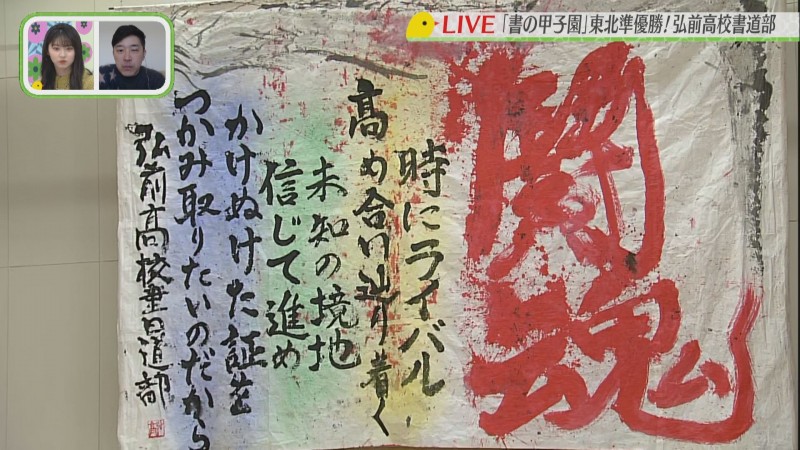 LIVE 「書の甲子園」東北準優勝!弘前高校書道部
闘魂
時にライバル
高め合い辿り着く
未知の境地
信じて進め
かけぬけた証を
つかみ取りたいのだから
弘前高校書道部